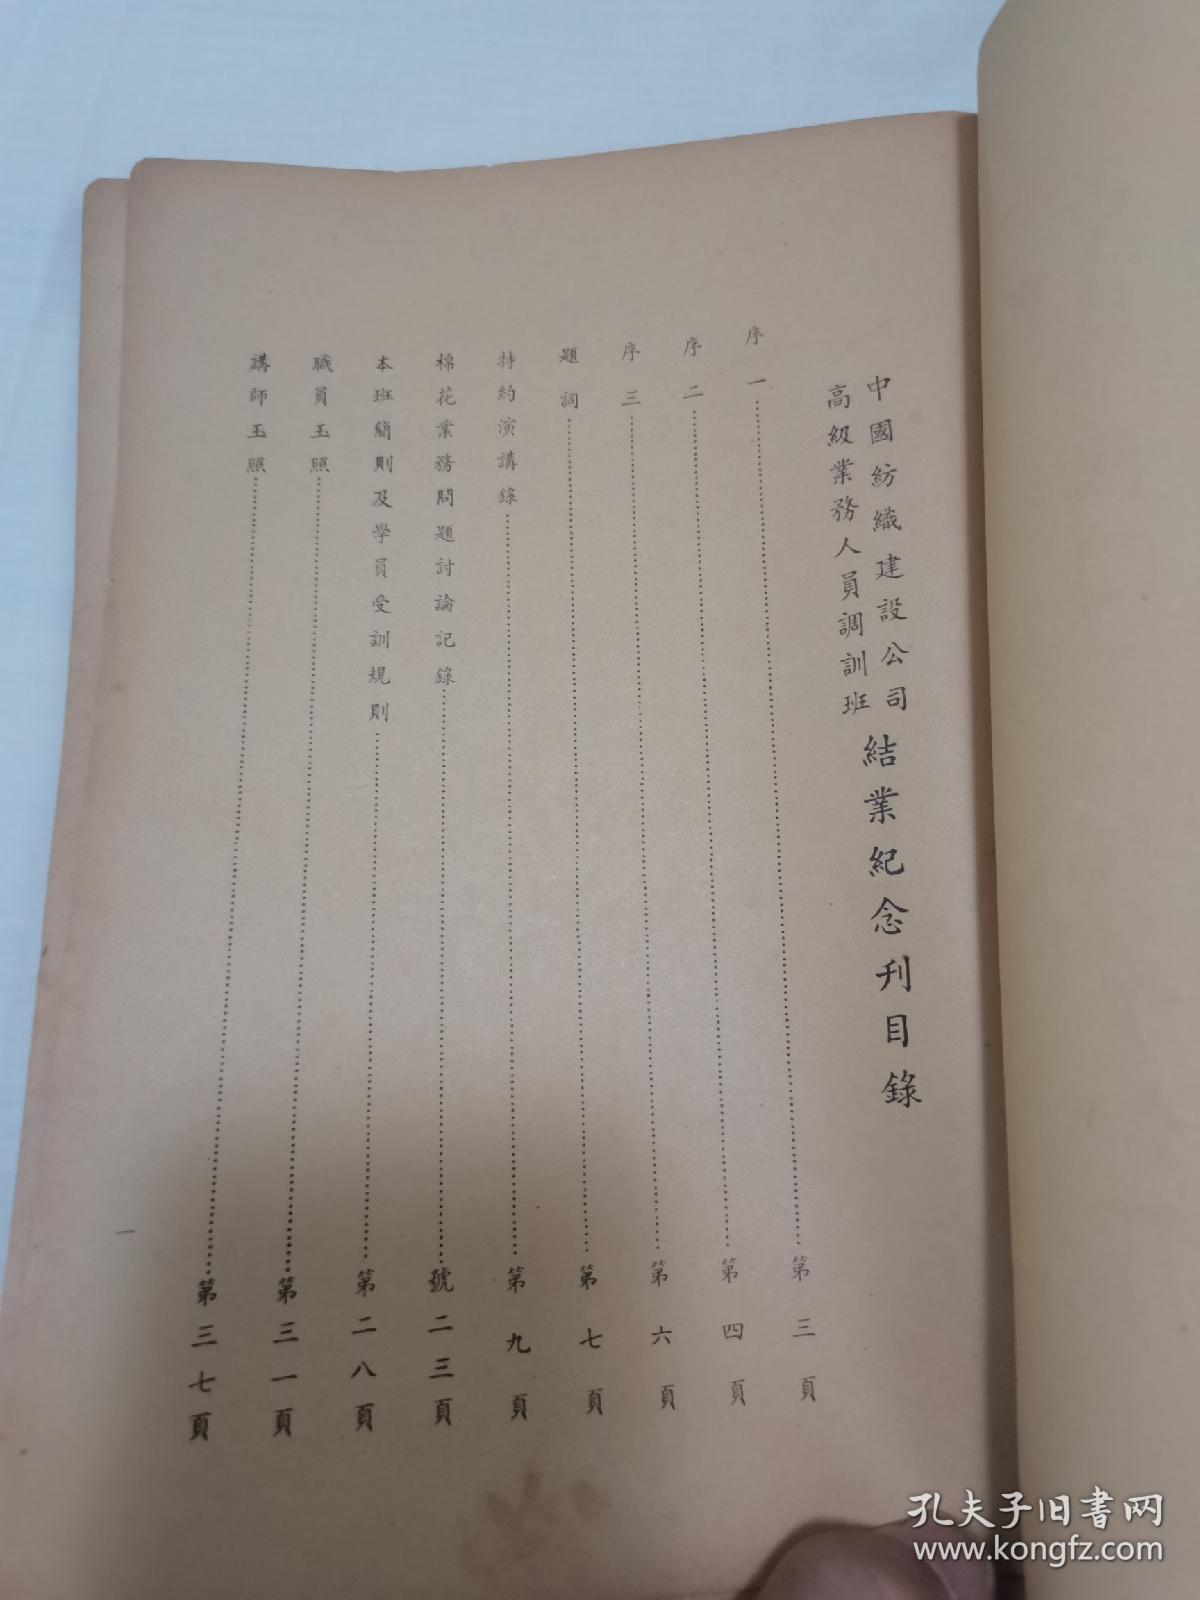 中國紡織建設公司
高級業務人員調訓班
結業紀念刊目錄
序一 第三頁
序二 第四頁
序三 第六頁
題詞 第七頁
特約演講錄 第九頁
棉花業務問題討論記錄 號二三頁
本班簡則及學員受訓規則 第二八頁
職員玉照 第三一頁
講師玉照 第三七頁
一
孔夫子旧书网
www.kongfz.com